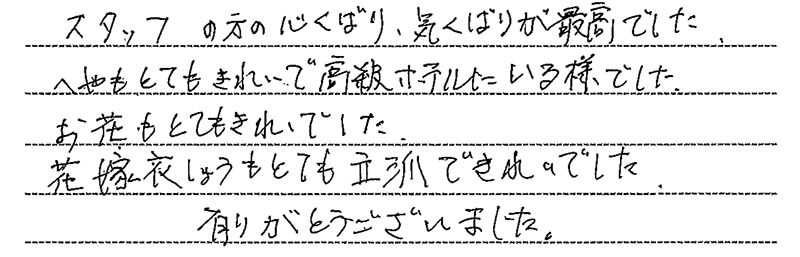 スタッフの方の心くばり、気くばりが最高でした.
へやもとてもきれいで高級ホテルにいる様でした.
お花もとてもきれいでした.
花嫁衣しょうもとても立派できれいでした.
有りがとうございました。